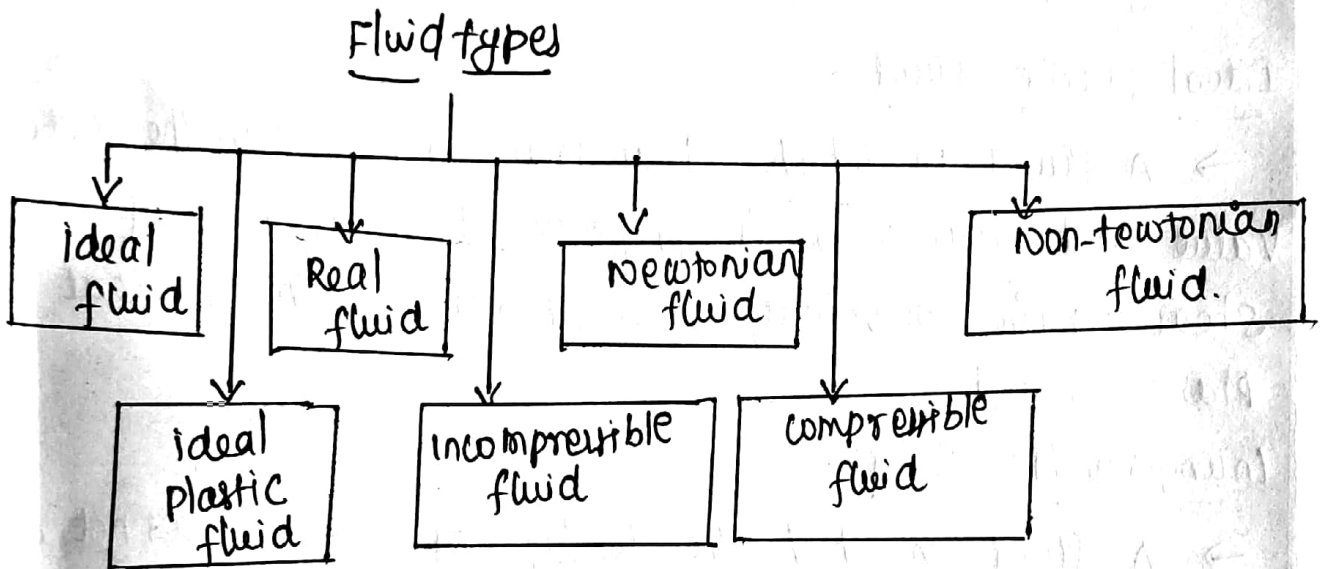 Fluid types
ideal
fluid
Real
fluid
Newtonian
fluid
Non-tewtonian
fluid.
ideal
plastic
fluid
incompressible
fluid
compressible
fluid